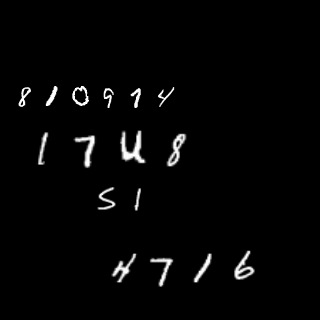 810974
1748
51
4716